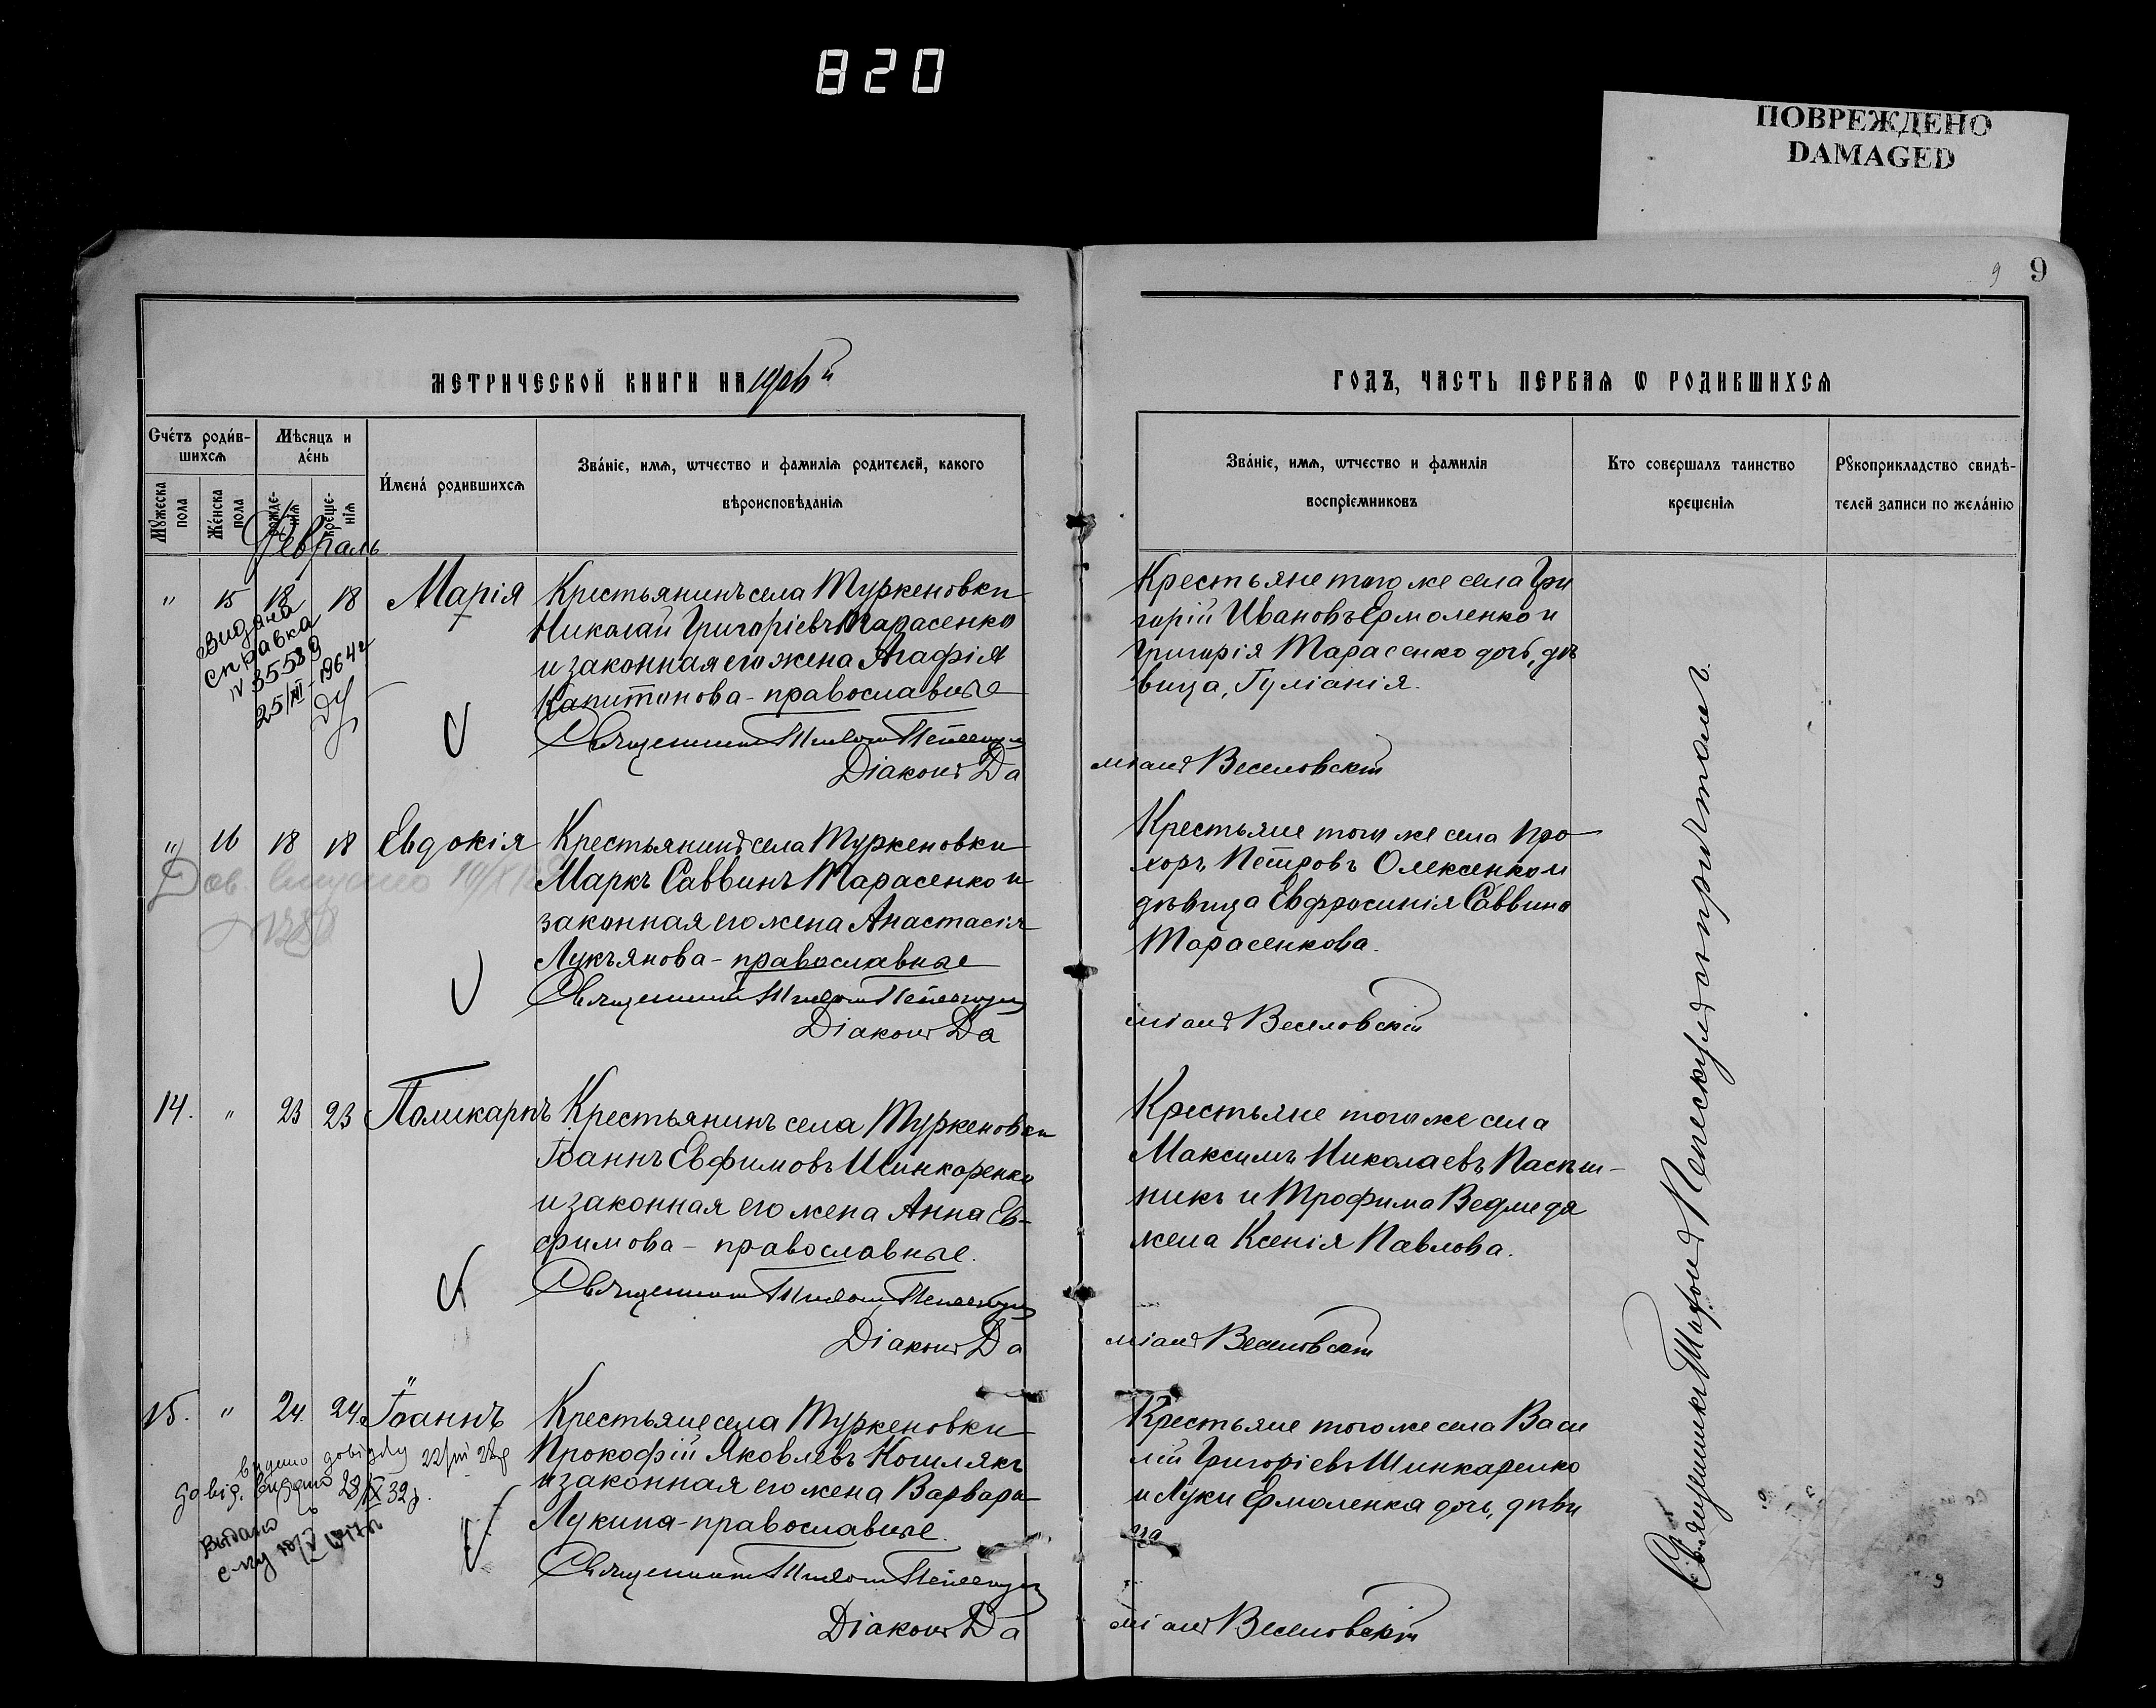 820
ПОВРЕЖДЕНО
DAMAGED
9 9
МЕТРИЧЕСКОЙ КНИГИ НА 1906й
ГОДЪ, ЧАСТЬ ПЕРВАѦ Ѡ РОДИВШИХСѦ
Счётъ родив-
шихсѧ
Мѣсяцъ и
день
Мꙋжеска
пола
Женска
пола
рожде-
нїѧ
креще-
нїѧ
Имена родившихсѧ
Званїе, имѧ, ѡтчество и фамилїѧ родителей, какого
вѣроисповѣданїѧ
Званїе, имѧ, ѡтчество и фамилїѧ
воспрїемниковъ
Кто совершалъ таинство
крещенїѧ
Рꙋкоприкладство свидѣ-
телей записи по желанїю
Февраль
" 15 18 18 Марія
Крестьянинъ села Туркеновки
Николай Григоріевъ Тарасенко
и законная его жена Агафія
Капитонова - православные
Священникъ
Діаконъ Да
міанъ Веселовскій
Крестьяне того же села Гри
горій Ивановъ Ермоленко и
Григорія Тарасенко дочь, дѣ
вица, Гуліанія.
Видана
справка
N 35589
25/XII-1964г
" 16 18 18 Евдокія
Крестьянинъ села Туркеновки
Маркъ Саввинъ Тарасенко и
законная его жена Анастасія
Лукьянова - православные
Священникъ
Діаконъ Да
міанъ Веселовскій
Крестьяне того же села Про
хоръ Петровъ Олексенко и
дѣвица Евфросинія Саввина
Тарасенкова.
Дов.
14. " 23 23 Поликарпъ
Крестьянинъ села Туркеновки
Іоаннъ Евфимовъ Шинкаренко
и законная его жена Анна Ев-
фимова - православные.
Священникъ
Діаконъ Да
міанъ Веселовскій
Крестьяне того же села
Максимъ Николаевъ Пасѣш-
никъ и Трофима Ведмедя
жена Ксенія Павлова.
15. " 24. 24. Іоаннъ
Крестьяне села Туркеновки
Прокофій Яковлевъ Кошлякъ
и законная его жена Варвара
Лукина - православные.
Священникъ
Діаконъ Да
міанъ Веселовскій
Крестьяне того же села Васи
лій Григоріевъ Шинкаренко
и Луки Ермоленка дочь, дѣви
ца
видано довідку
довід. видано 28/IX 32р.
Выдано
Священникъ